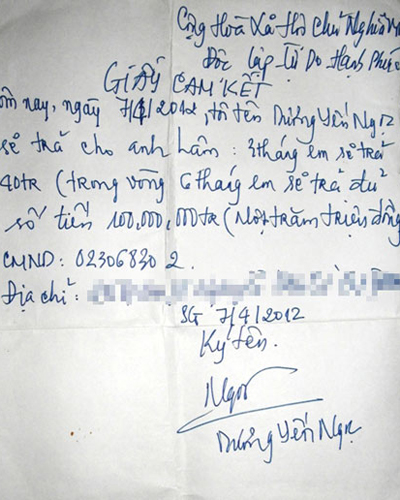 Cộng Hoà Xã Hội Chủ Nghĩa
Độc lập Tự Do Hạnh Phúc
GIẤY CAM KẾT
nay, ngày 7/4/2012, tôi tên Dương Yến Ngọc
sẽ trả cho anh hân : 3tháng em sẽ trả
40tr (trong vòng 6tháng em sẽ trả đủ
số tiền 100,000,000tr (Một trăm triệu đồng
CMND : 02306830 2.
Địa chỉ :
SG 7/4/2012
Ký tên.
Ngọc
Dương Yến Ngọc